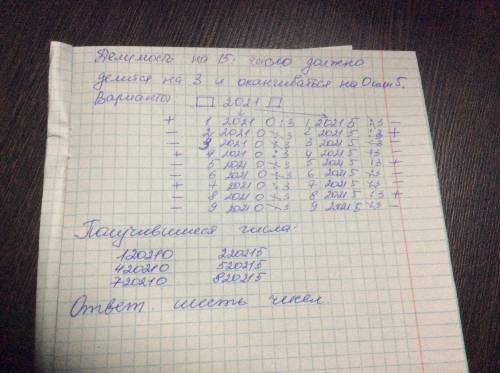 Делимость на 15: число должно
делится на 3 и оканчиваться на 0 или 5.
Варианты □ 2021 □
+ 1 2021 0 :3 1 2021 5 :3 –
– 2 2021 0 :3 2 2021 5 :3 +
– 3 2021 0 :3 3 2021 5 :3 –
+ 4 2021 0 :3 4 2021 5 :3 –
– 5 2021 0 :3 5 2021 5 :3 +
– 6 2021 0 :3 6 2021 5 :3 –
+ 7 2021 0 :3 7 2021 5 :3 –
– 8 2021 0 :3 8 2021 5 :3 +
– 9 2021 0 :3 9 2021 5 :3 –
Получившиеся числа:
120210 220215
420210 520215
720210 820215
Ответ. шесть чисел